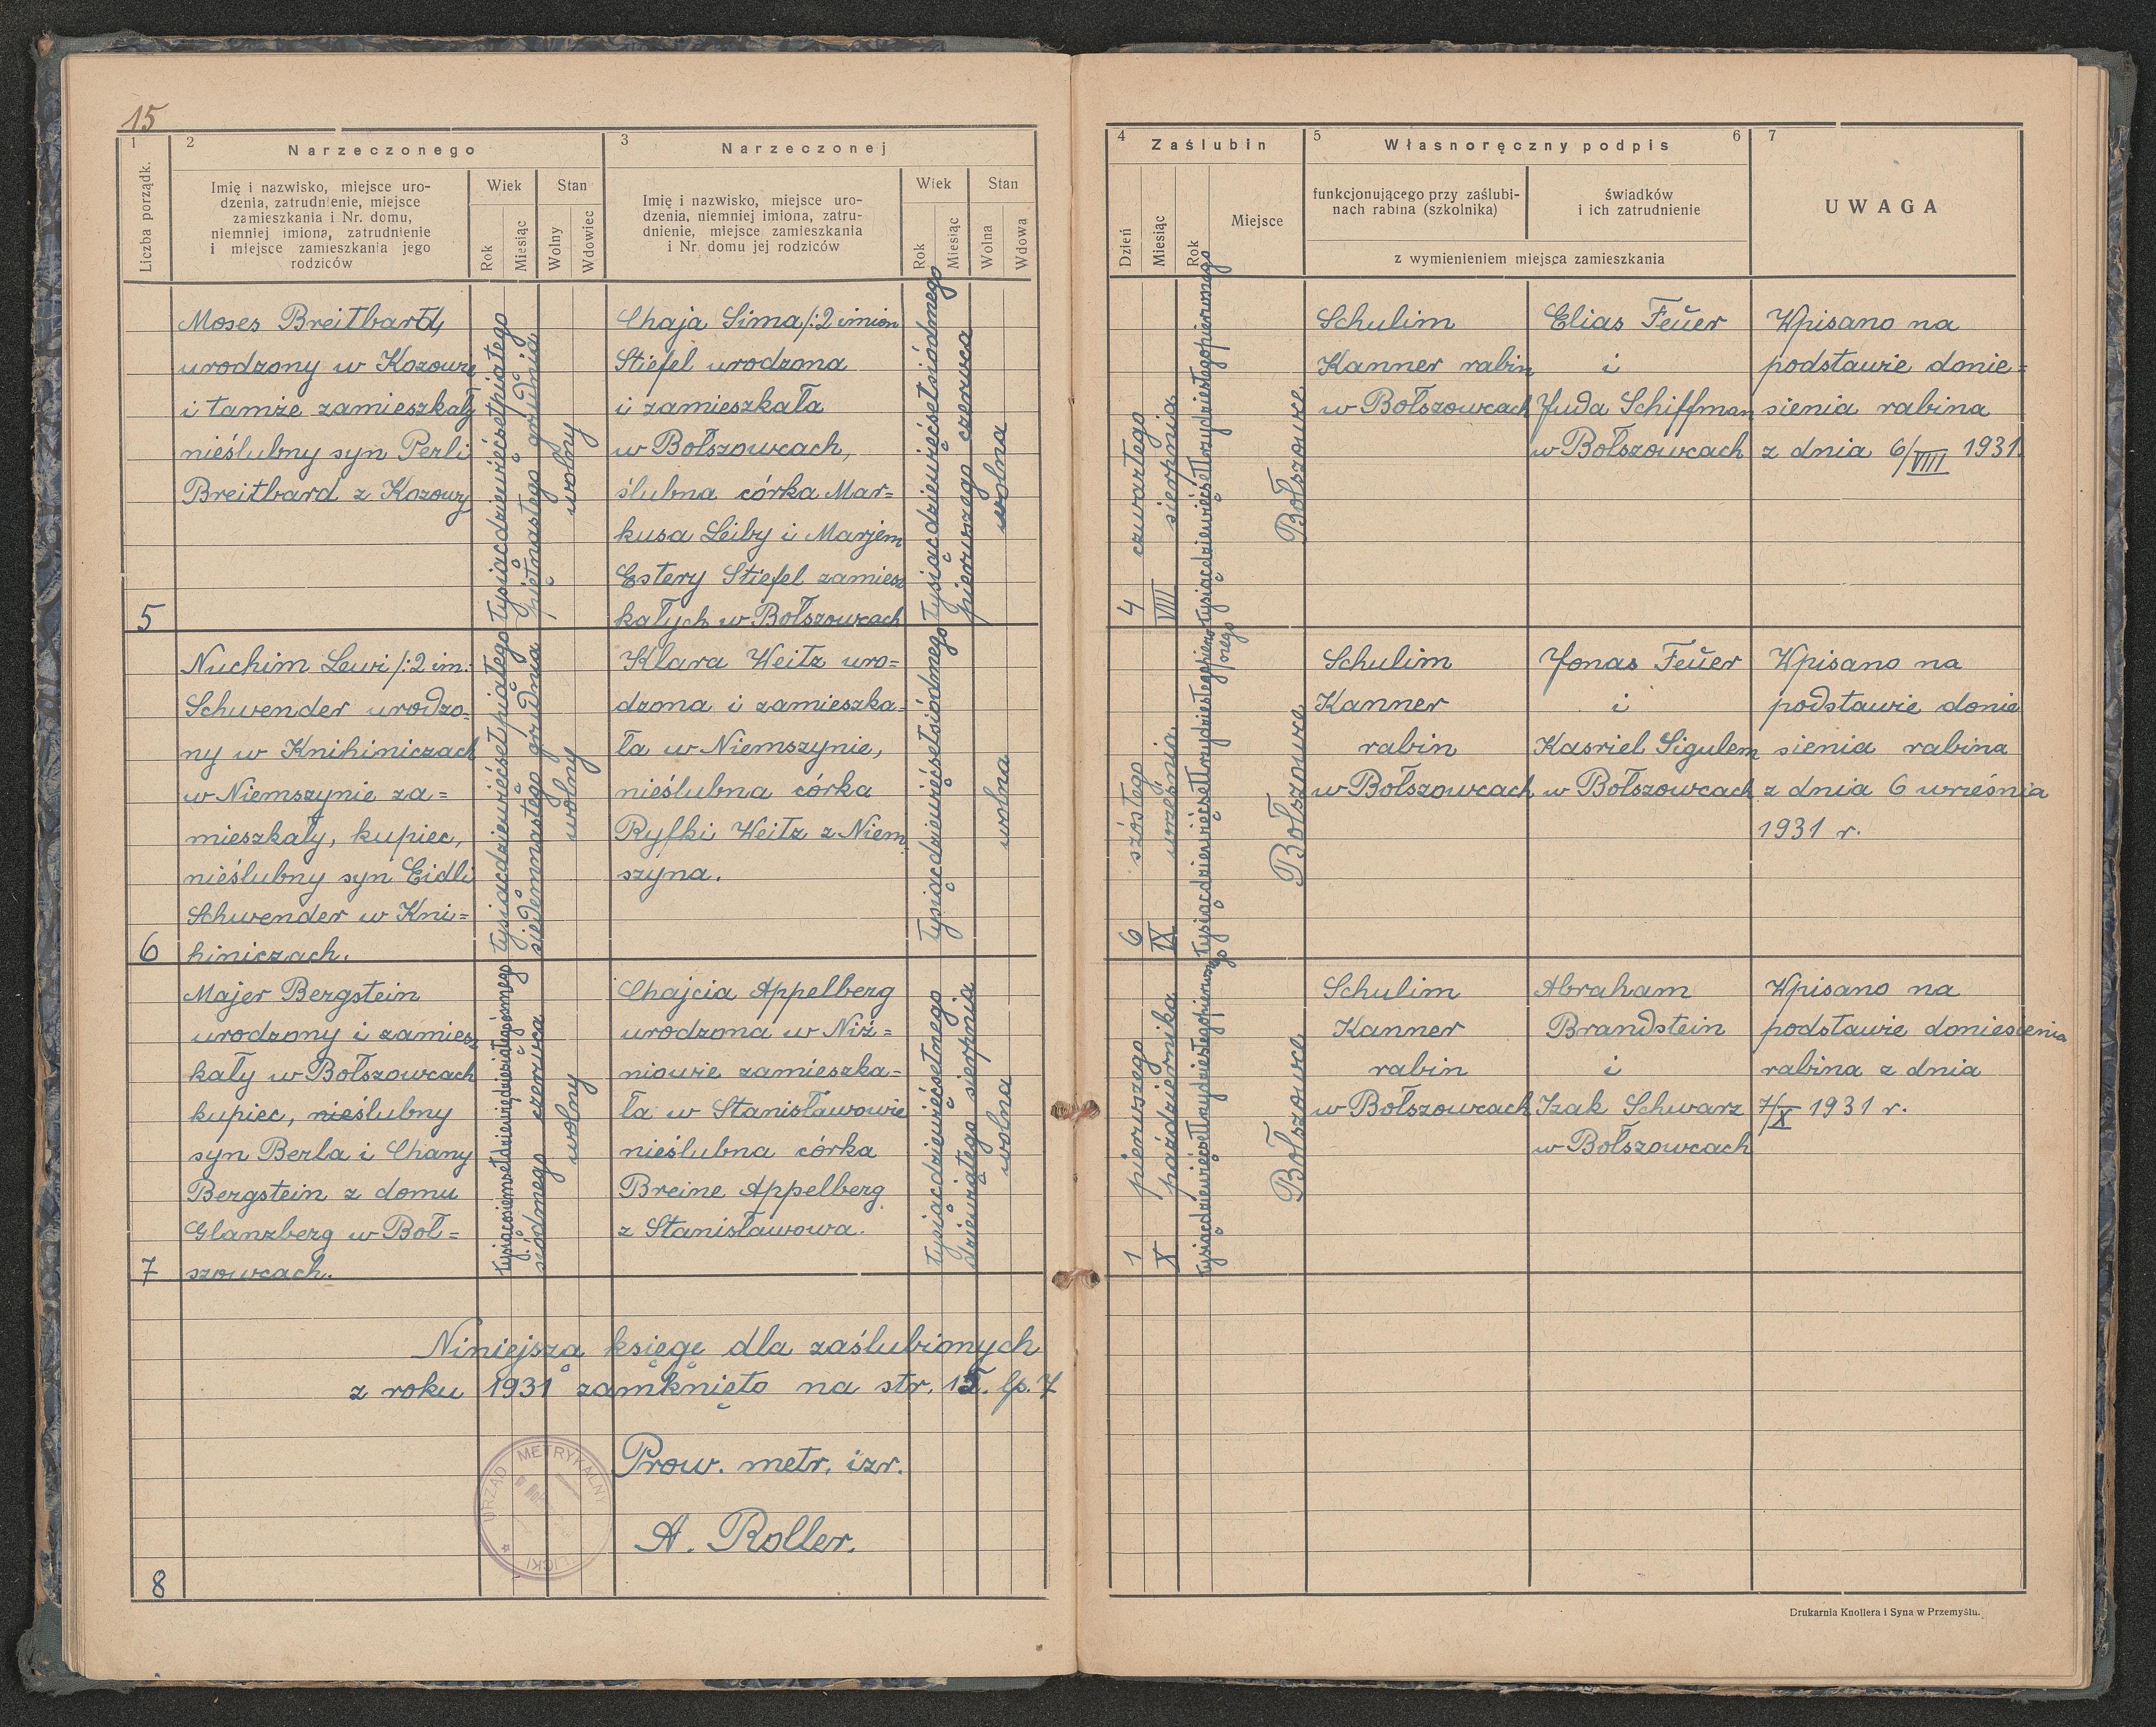 15
1
2
Narzeczonego
3
Narzeczonej
Liczba porządk.
Imię i nazwisko, miejsce uro-
dzenia, zatrudnienie, miejsce
zamieszkania i Nr. domu,
niemniej imiona, zatrudnienie
i miejsce zamieszkania jego
rodziców
Wiek
Rok
Miesiąc
Stan
Wolny
Wdowiec
Imię i nazwisko, miejsce uro-
dzenia, niemniej imiona, zatru-
dnienie, miejsce zamieszkania
i Nr. domu jej rodziców
Wiek
Rok
Miesiąc
Stan
Wolna
Wdowa
5
Moses Breitbard,
urodzony w Kozowej
i tamże zamieszkały
nieślubny syn Perli
Breitbard z Kozowy
tysiącdziewięćsetpiątego
piętnastego grudnia
wolny
Chaja Sima /:2 imion
Stiefel urodzona
i zamieszkała
w Bołszowcach,
ślubna córka Mar=
kusa Leiby i Marjem
Estery Stiefel zamiesz
kałych w Bołszowcach
tysiącdziewięćsetsiódmego
pierwszego czerwca
wolna
6
Nuchim Lewi /:2 im.
Schwender urodzo=
ny w Knihiniczach
w Niemszynie za=
mieszkały, kupiec,
nieślubny syn Eidli
Schwender w Kni=
hiniczach.
tysiącdziewięćsetpiątego
siedemnastego grudnia
wolny
Klara Weitz uro=
dzona i zamieszka=
ła w Niemszynie,
nieślubna córka
Ryfki Weitz z Niem
szyna.
tysiącdziewięćsetsiódmego
wolna
7
Majer Bergstein
urodzony i zamiesz
kały w Bołszowcach
kupiec, nieślubny
syn Berla i Chany
Bergstein z domu
Glanzberg w Boł=
szowcach.
tysiącosiemsetdziewięćdziesiątegoósmego
siódmego czerwca
wolny
Chajcia Appelberg
urodzona w Niż=
niowie zamieszka=
ła w Stanisławowie
nieślubna córka
Breine Appelberg
z Stanisławowa.
tysiącdziewięćsetnego
dziewiątego sierpnia
wolna
Niniejszą księgę dla zaślubionych
z roku 1931 zamknięto na str. 15. lp. 7
Prow. metr. izr.
A. Roller.
URZĄD METRYKALNY
8
4
Zaślubin
5
Własnoręczny podpis
6
7
Dzień
Miesiąc
Rok
Miejsce
funkcjonującego przy zaślubi-
nach rabina (szkolnika)
świadków
i ich zatrudnienie
z wymienieniem miejsca zamieszkania
UWAGA
4
czwartego
VIII
sierpnia
tysiącdziewięćsettrzydziestegopierwszego
Bołszowce
Schulim
Kanner rabin
w Bołszowcach
Elias Feuer
i
Juda Schiffman
w Bołszowcach
Wpisano na
podstawie donie=
sienia rabina
z dnia 6/VIII 1931.
6
szóstego
IX
września
tysiącdziewięćsettrzydziestegopierw
szego
Bołszowce
Schulim
Kanner
rabin
w Bołszowcach
Jonas Feuer
i
Kasriel Sigulem
w Bołszowcach
Wpisano na
podstawie donie
sienia rabina
z dnia 6 września
1931 r.
1
pierwszego
X
października
tysiącdziewięćsettrzydziestegopierwszego
Bołszowce
Schulim
Kanner
rabin
w Bołszowcach
Abraham
Brandstein
i
Izak Schwarz
w Bołszowcach
Wpisano na
podstawie doniesienia
rabina z dnia
7/X 1931 r.
Drukarnia Knollera i Syna w Przemyślu.